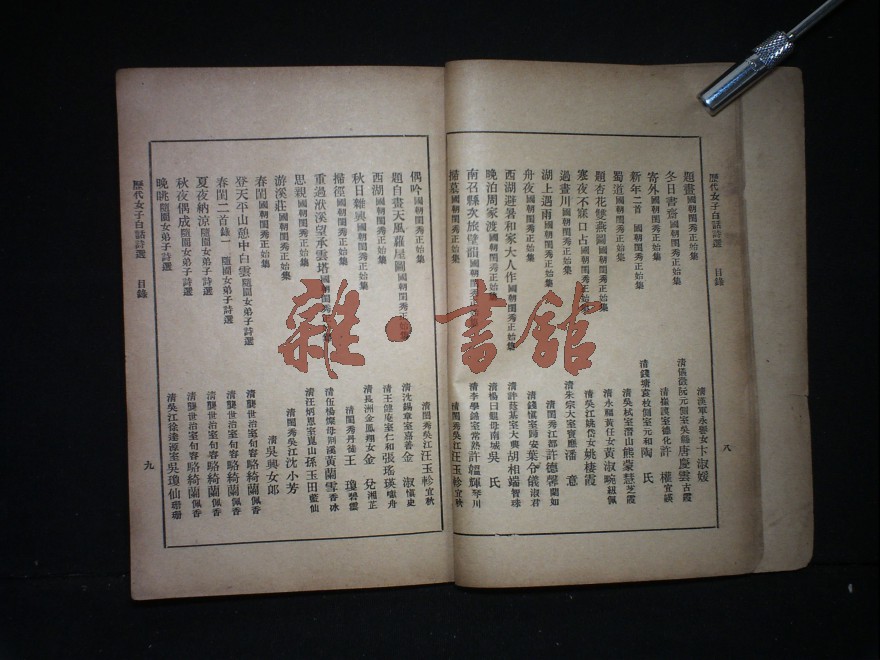 歷代女子白話詩選 目錄 八
題畫國朝閨秀正始集 清漢軍永譽女卞淑媛
冬日書齋國朝閨秀正始集 清儀徵阮元側室吳縣唐慶雲古霞
寄外國朝閨秀正始集 清崔謨室德化許權宜媖
新年二首 國朝閨秀正始集 清錢塘袁枚側室元和陶氏
蜀道國朝閨秀正始集 清吳栻室潛山熊象慧芝霞
題杏花雙燕圖國朝閨秀正始集 清永福黃任女黃淑畹紉佩
寒夜不寐口占國朝閨秀正始集 清吳江姚岱女姚棲霞
過畫川國朝閨秀正始集 清朱宗大室寶應潘意
湖上遇雨國朝閨秀正始集 清閨秀江都許德馨蘭如
舟夜國朝閨秀正始集 清錢慎室歸安葉令儀淑君
西湖避暑和家大人作國朝閨秀正始集 清許蔭基室大興胡相端智珠
晚泊周家渡國朝閨秀正始集 清楊曰鯤母南城吳氏
南召縣次旅壁韻國朝閨秀正始集 清李學錦室常熟許韞輝琴川
掃墓國朝閨秀正始集 清閨秀吳江汪玉軫宜秋
偶吟國朝閨秀正始集 清閨秀吳江汪玉軫宜秋
題自畫天風蘿屋圖國朝閨秀正始集 清沈錫章室嘉善金淑慎史
西湖國朝閨秀正始集 清王健庵室仁和張瑤瑛嘯舟
秋日雜興國朝閨秀正始集 清長洲金鳳翔女金兌湘芷
掃徑國朝閨秀正始集 清閨秀丹徒王瓊碧雲
重過洑溪望承雲塔國朝閨秀正始集 清伍惕燦母荊溪黃蘭雪香冰
思親國朝閨秀正始集 清汪炳恩室崑山孫玉田藍仙
游溪莊國朝閨秀正始集 清閨秀吳江沈小芳
春閨國朝閨秀正始集 清吳興女郎
登天平山憩中白雲隨園女弟子詩選 清龔世治室句容駱綺蘭佩香
春閨二首錄一 隨園女弟子詩選 清龔世治室句容駱綺蘭佩香
夏夜納涼隨園女弟子詩選 清龔世治室句容駱綺蘭佩香
秋夜偶成隨園女弟子詩選 清龔世治室句容駱綺蘭佩香
晚眺隨園女弟子詩選 清吳江徐達源室吳瓊仙珊珊
歷代女子白話詩選 目錄 九
雜·書館